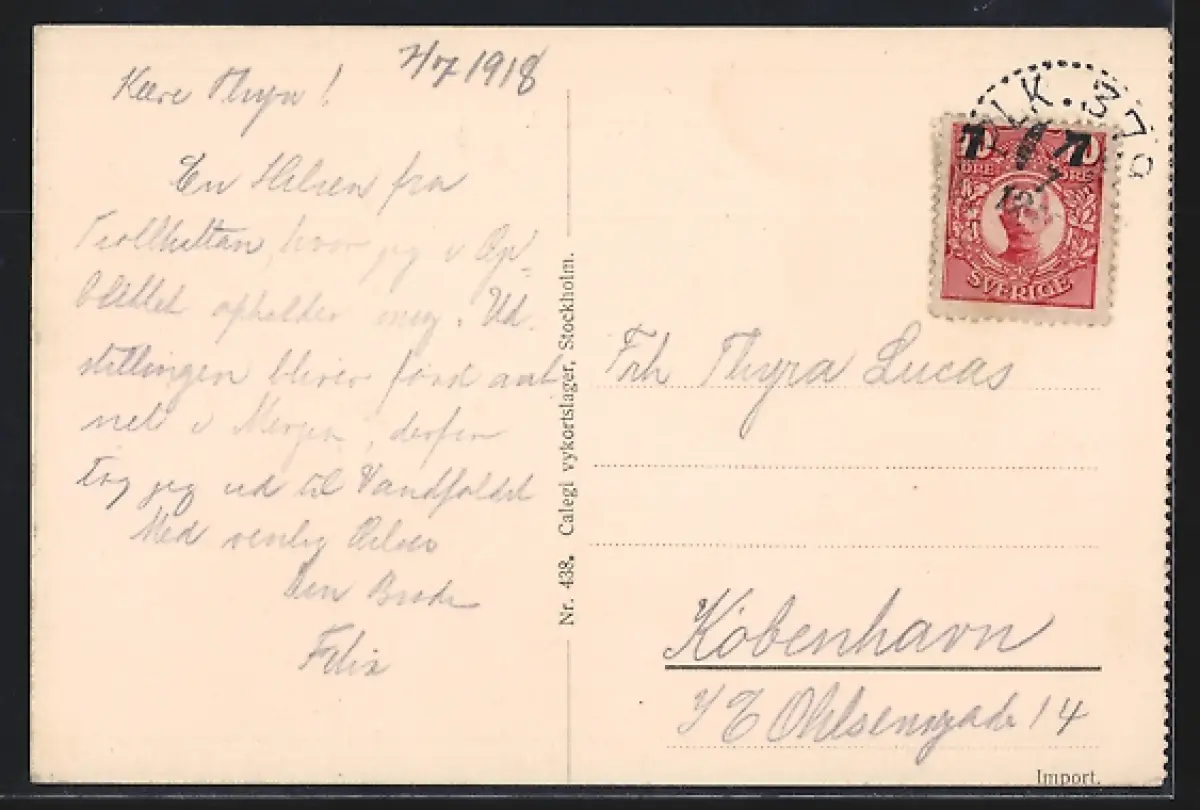 7/7 1918
Kære Thyra!
En Hilsen fra
Trollhättan, hvor jeg i Øje-
blikket opholder mig. Ud-
stillingen bliver først aab
net i Morgen, derfor
tog jeg ud til Vandfaldet
Med venlig Hilsen
Din Broder
Felix
Nr. 438. Calegi vykortslager, Stockholm.
PLK. 379
7 7
ÖRE ÖRE
SVERIGE
Frk Thyra Lucas
København
J E Ohlsensgade 14
Import.